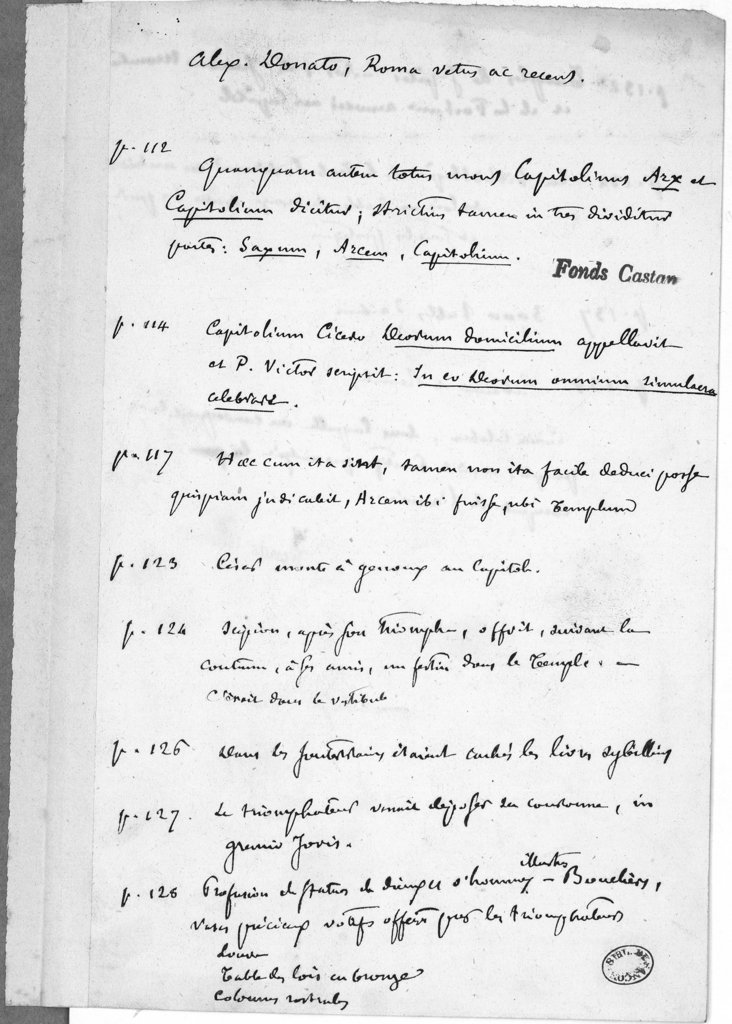 Alex. Donato, Roma vetus ac recens.
p. 112
Quanquam autem totus mons Capitolinus Arx et
Capitolium dicitur; strictius tamen in tres dividitur
partes: Saxum, Arcem, Capitolium.
Fonds Castan
p. 114 Capitolium Cicero Deorum domicilium appellavit
et P. Victor scripsit: In eo Deorum omnium simulacra
celebrari.
p. 117 Haec cum ita sint, tamen non ita facile deduci posse
quispiam judicabit, Arcem ibi fuisse, ubi Templum
p. 123 César monte à genoux au Capitole.
p. 124 Scipion, après son triomphe, offrit, suivant la
coutume, à ses amis, un festin dans le Temple. —
C'était dans le vestibule
p. 126 Dans les souterrains étaient cachés les livres sybillins
p. 127. Le triomphateur venait déposer sa couronne, in
gremio Jovis.
illustres
p. 128 Profusion de statues de dieux et d'hommes — Boucliers,
vases précieux votifs offerts par les triomphateurs
Table des lois en bronze
Colonnes rostrales